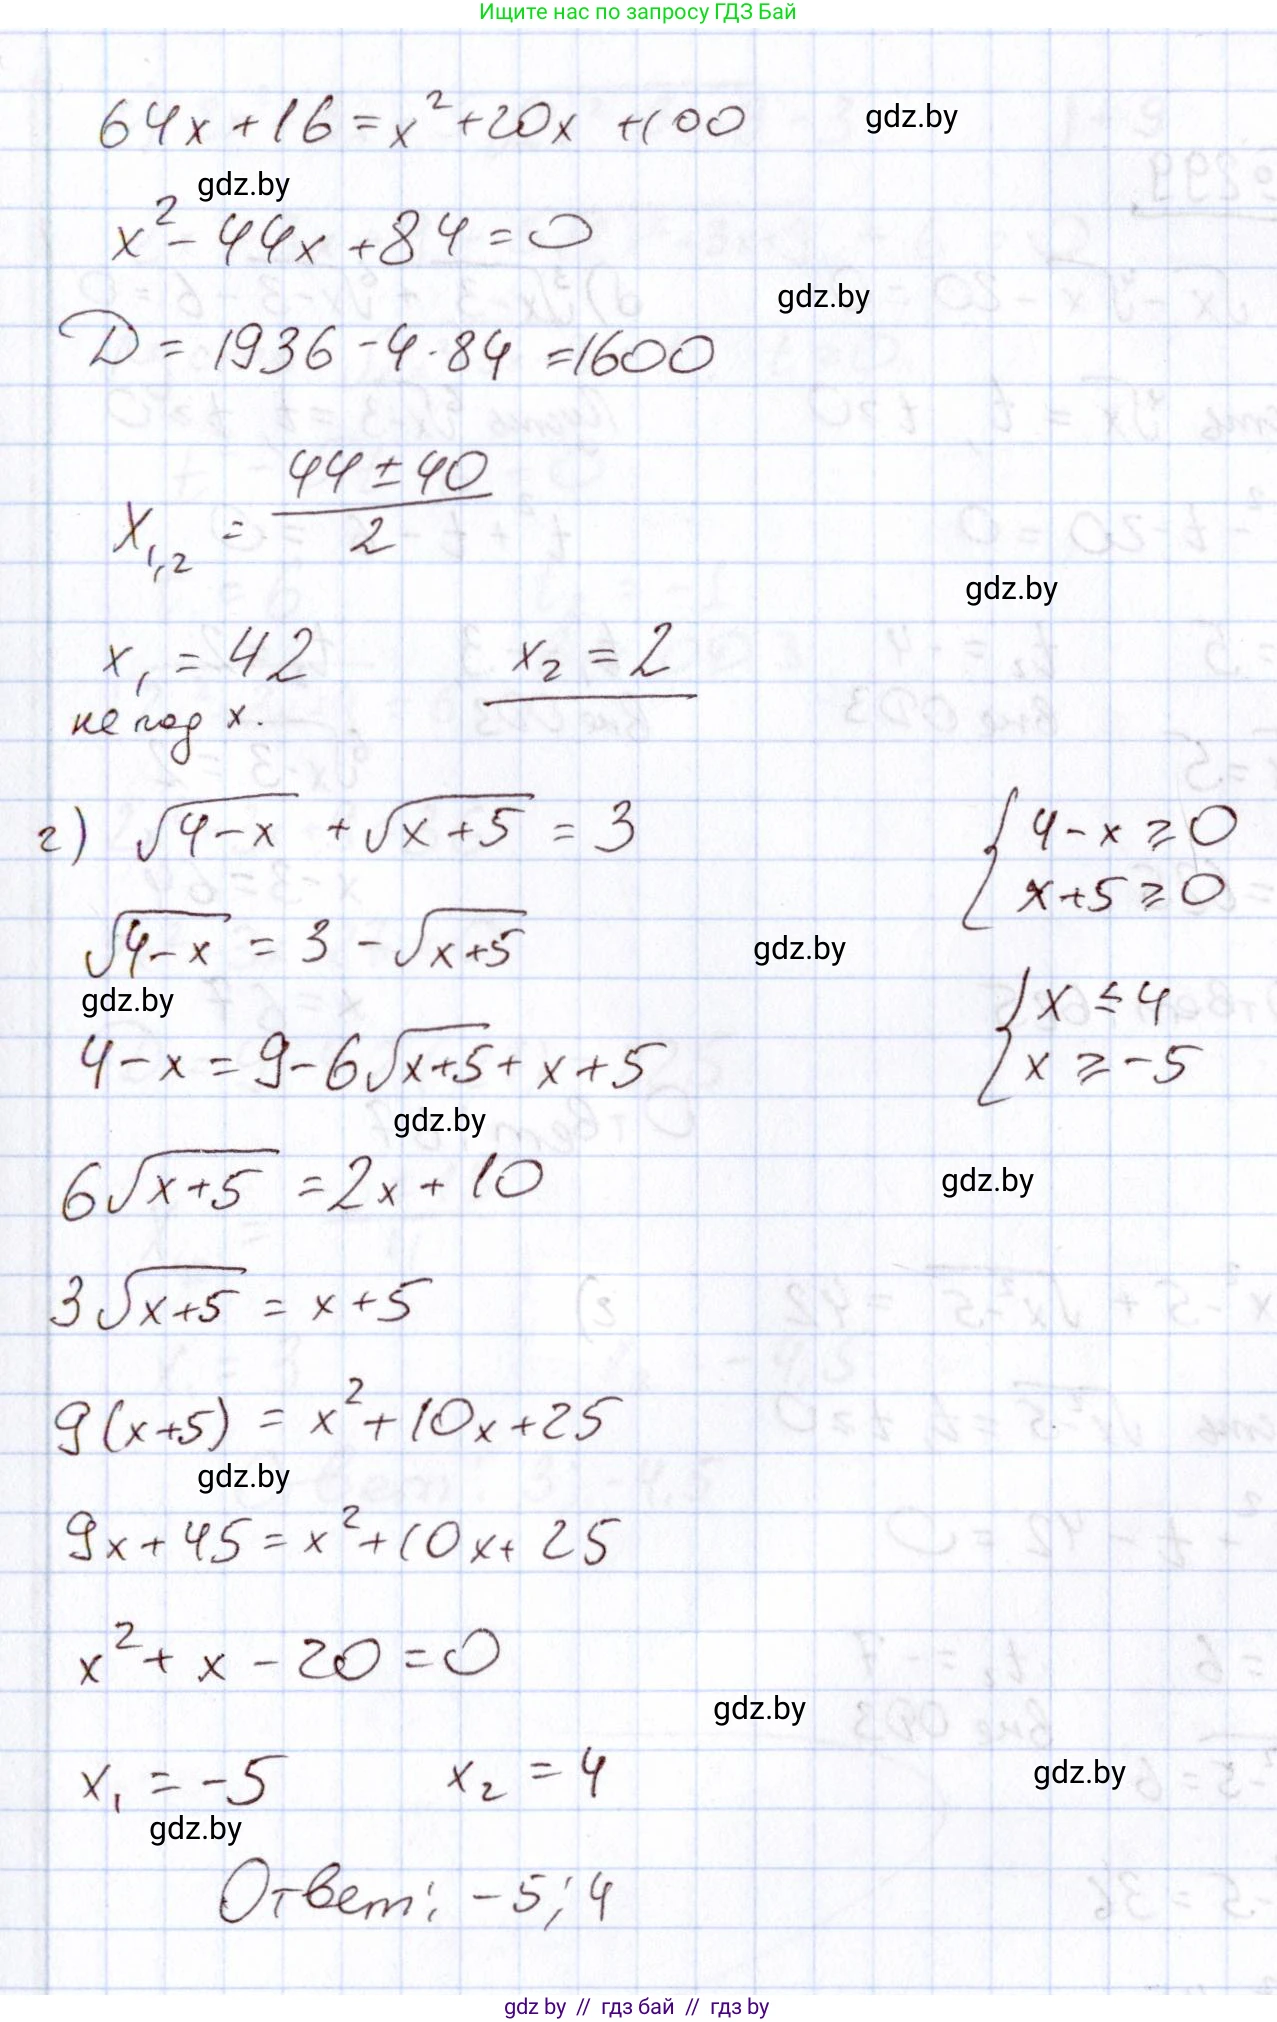 Ищите нас по запросу ГДЗ Бай
64x + 16 = x² + 20x + 100
gdz.by
gdz.by
x² - 44x + 84 = 0
gdz.by
D = 1936 - 4 · 84 = 1600
x₁,₂ = (44 ± 40)/2
gdz.by
x₁ = 42 x₂ = 2
не под x.
г) √(4-x) + √(x+5) = 3 { 4-x ≥ 0
x+5 ≥ 0
√(4-x) = 3 - √(x+5)
gdz.by
gdz.by
{ x ≤ 4
x ≥ -5
4-x = 9 - 6√(x+5) + x + 5
gdz.by
6√(x+5) = 2x + 10
gdz.by
3√(x+5) = x + 5
9(x+5) = x² + 10x + 25
gdz.by
9x + 45 = x² + 10x + 25
x² + x - 20 = 0
gdz.by
x₁ = -5 x₂ = 4
gdz.by
gdz.by
Ответ: -5; 4
gdz.by // гдз бай // гдз by